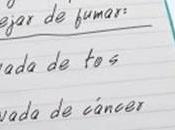 ejar de fumar:
ada de tos
vada de cáncer